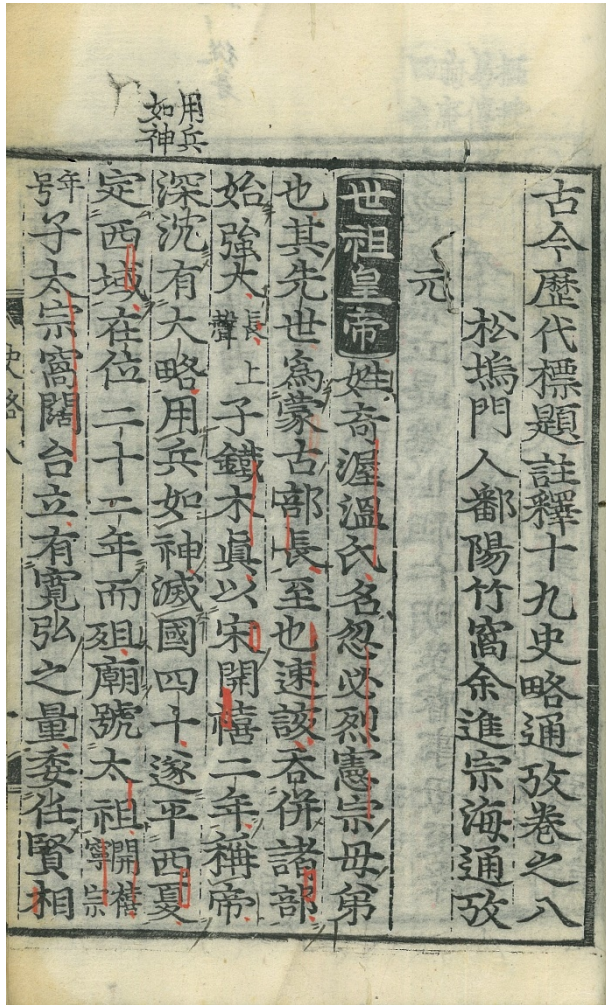 古今歷代標題註釋十九史略通攷卷之八
松塢門人鄱陽竹窩余進宗海通攷
元
世祖皇帝姓奇渥溫氏名忽必烈憲宗母弟
也其先世爲蒙古部長至也速該吞併諸部
始强大長上聲子鐵木眞以宋開禧二年稱帝
用兵如神
深沈有大略用兵如神滅國四十遂平西夏
定西域在位二十二年而殂廟號太祖開禧寧宗
年號子太宗窩闊台立有寬弘之量委任賢相